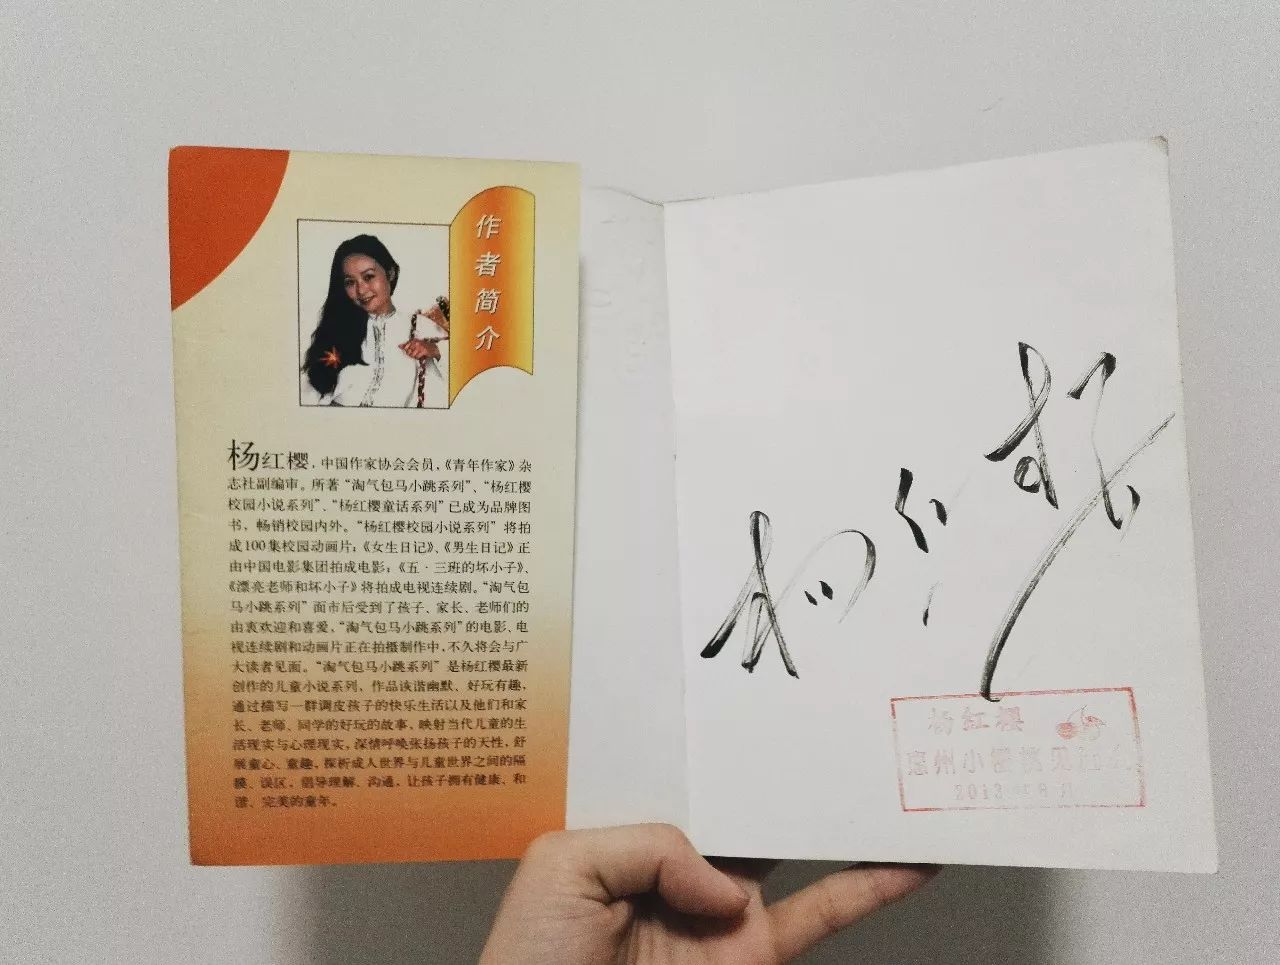 作者简介
杨红樱，中国作家协会会员，《青年作家》杂
志社副编审。所著“淘气包马小跳系列”、“杨红樱
校园小说系列”、“杨红樱童话系列”已成为品牌图
书，畅销校园内外。“杨红樱校园小说系列”将拍
成100集校园动画片；《女生日记》、《男生日记》正
由中国电影集团拍成电影；《五·三班的坏小子》、
《漂亮老师和坏小子》将拍成电视连续剧。“淘气包
马小跳系列”面市后受到了孩子、家长、老师们的
由衷欢迎和喜爱，“淘气包马小跳系列”的电影、电
视连续剧和动画片正在拍摄制作中，不久将会与广
大读者见面。“淘气包马小跳系列”是杨红樱最新
创作的儿童小说系列，作品诙谐幽默、好玩有趣，
通过描写一群调皮孩子的快乐生活以及他们和家
长、老师、同学的好玩的故事，映射当代儿童的生
活现实与心理现实，深情呼唤张扬孩子的天性，舒
展童心、童趣，探析成人世界与儿童世界之间的隔
膜、误区，倡导理解、沟通，让孩子拥有健康、和
谐、完美的童年。
杨红樱
杨红樱
惠州小樱桃见